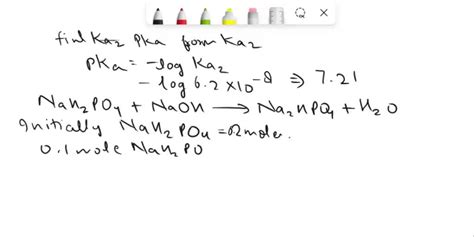 find Ka2 pKa from Ka2
pKa = -log Ka2
- log 6.2 × 10^-8 ⇒ 7.21
NaH2PO4 + NaOH → Na2HPO4 + H2O
Initially NaH2PO4 = 0.2 mole.
0.1 mole NaH2PO